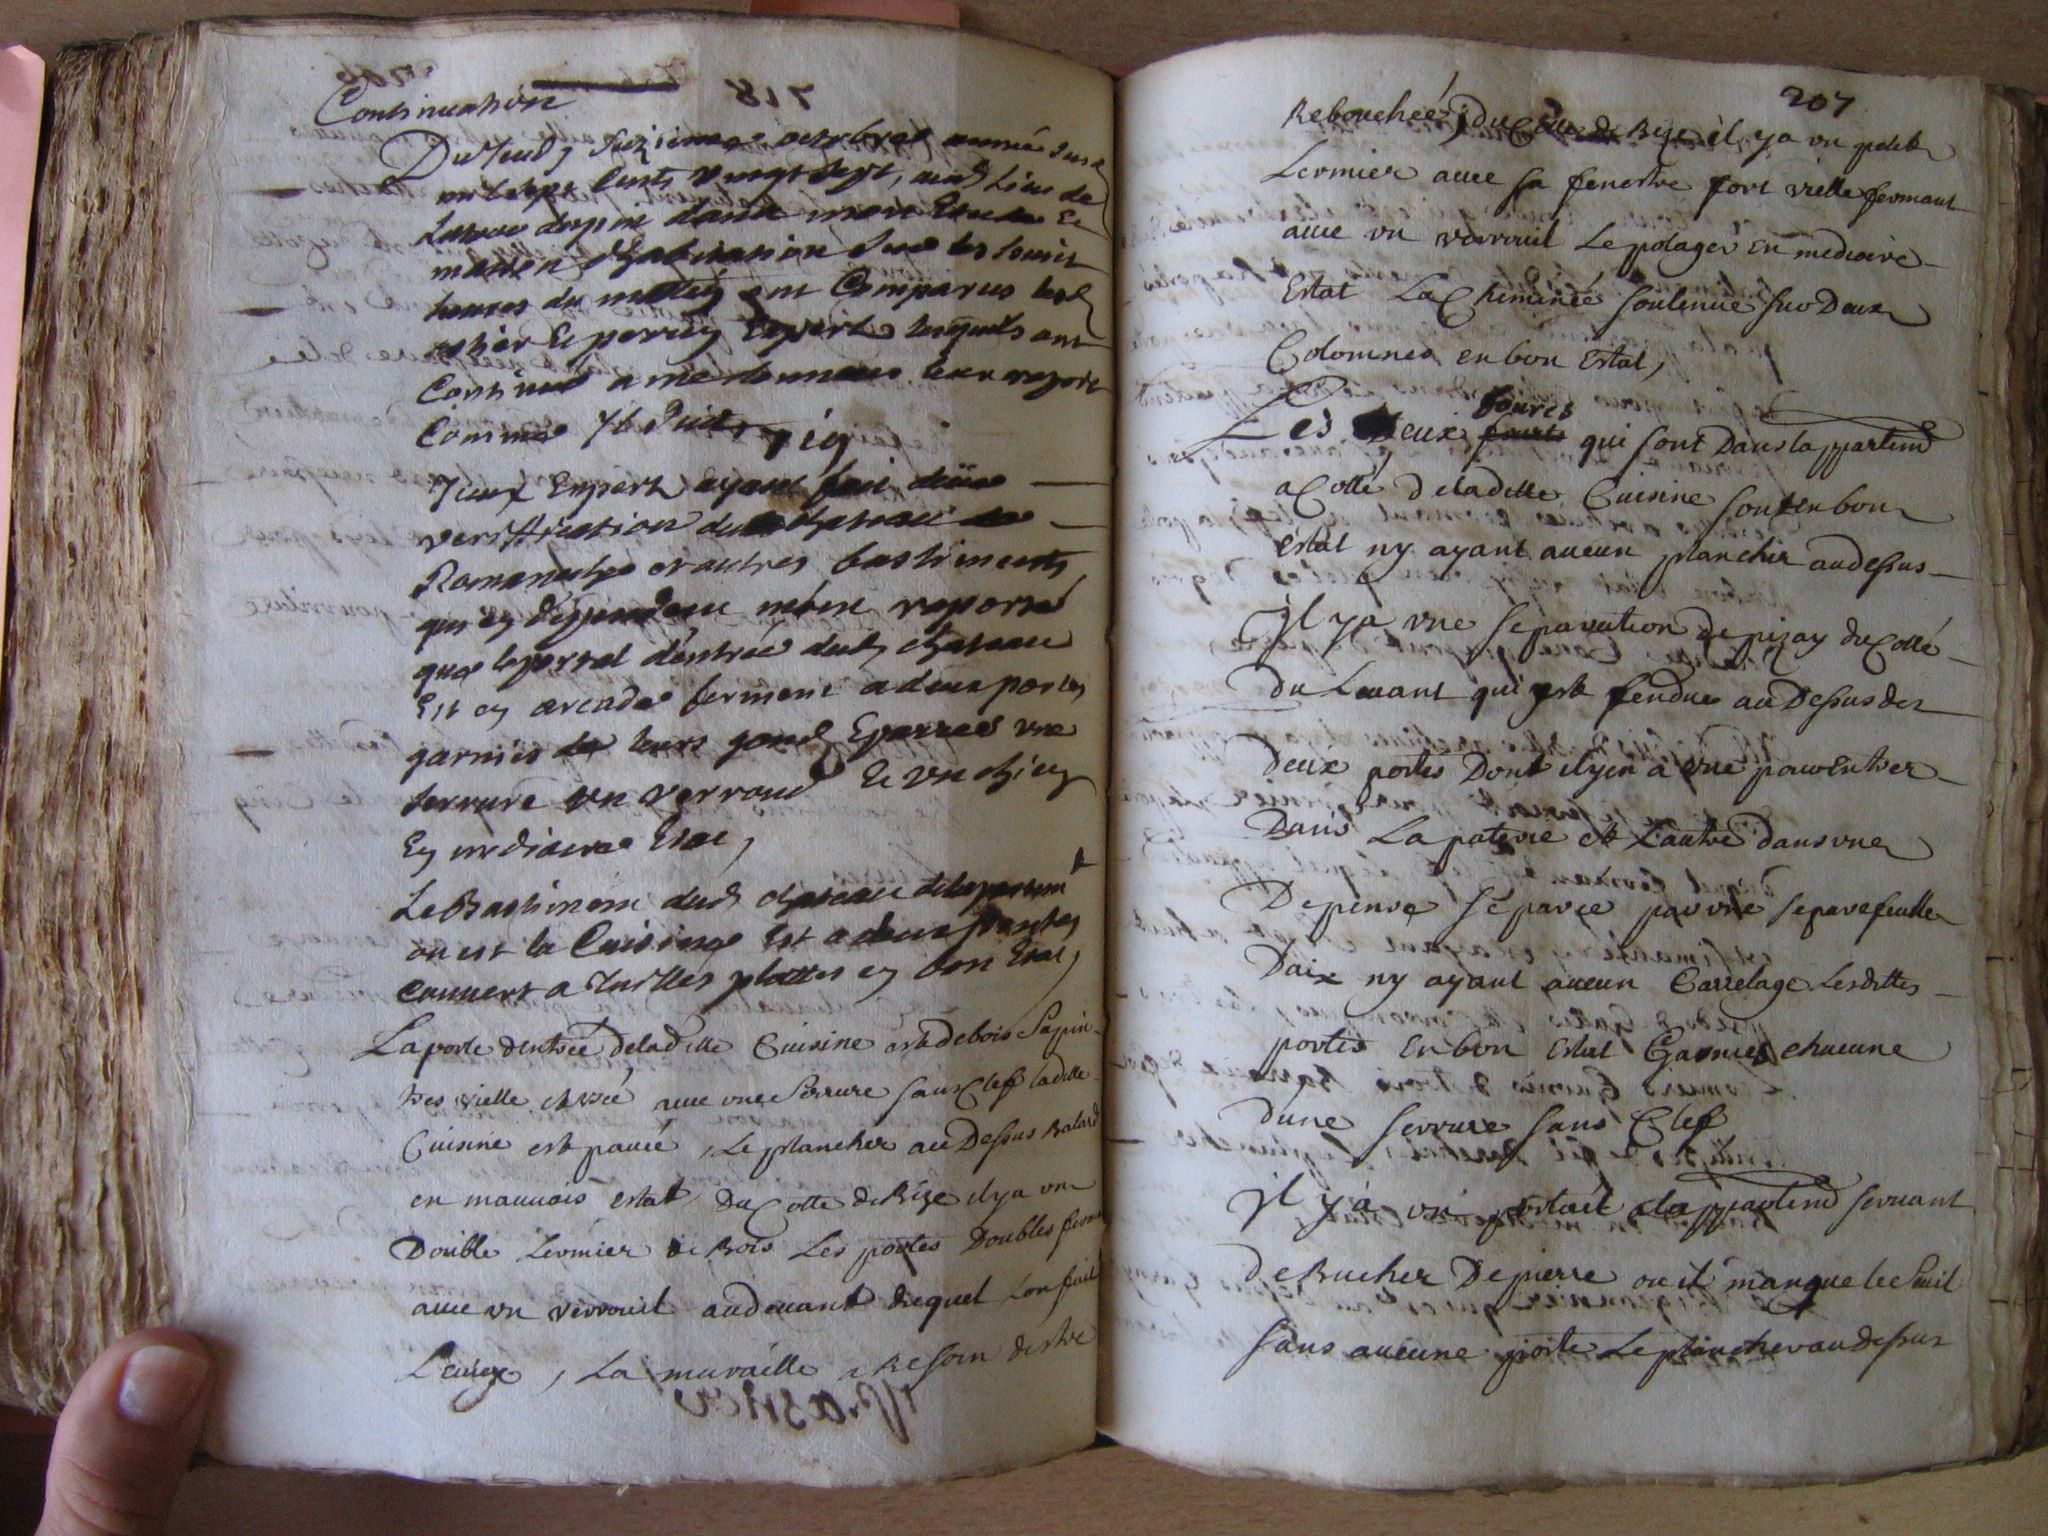 Continuation
Du Jeudy seizieme octobre année susd
mil sept cents vingt sept, aud lieu de
dans mon Etude Et
maison d'habitation sur les huict
heures du matin ont Comparus lesd
et perrin Experts lesquels ont
Continué a me donner leur raport
Comme s'ensuit
Iceux Experts ayant fait deüe
veriffication dud chateau de
Romaneche et autres bastiments
qui en dependent m'ont raporté
que le portal d'entrée dud chateau
Est en arcade ferment a deux portes
garnies de leurs gond Eparres une
serrure un verroud Et un
En mediocre Etat,
Le Bastiment dud chateau de lapartemt
ou est la Cuisine Est a deux pantes
Couvert a Tuilles plattes en bon Etat,
La porte dentrée deladitte Cuisine est de bois Sapin
tres vielle et usée avec une Serrure sans Clef ladite
Cuisine est pavée, Le plancher au Dessus
en mauvais estat, Du Cotte de Bize il ya un
Double Lermier de Bois Les portes Doubles ferm
avec un verrouil audevant duquel Lon fait
, La muraille a Besoin destre
207
Rebouchée, du Cotte de Bize il ya un petit
Lermier avec sa fenestre fort vielle fermant
avec un verrouil Le potager en mediocre
Estat La Cheminée soutenue sur Deux
Colomnes en bon Estat,
fours
Les Deux fours qui sont Dans lappartemt
a Cotté deladitte Cuisine sont en bon
estat ny ayant aucun plancher audessus
Il ya une separation de pizay du Cotté
du Levant qui est fendue au Dessus des
deux portes Dont il y en a une pour Entrer
Dans La paterie et Lautre dans une
Depense separée par une separefeuille
Daix ny ayant aucun Carrelage Lesdittes
portes en bon Estat Garnies chacune
dune serrure sans Clef
Il y a un portail a lappartemt servant
de Bucher De pierre ou il manque le seuil
sans aucune porte Le plancher au dessus